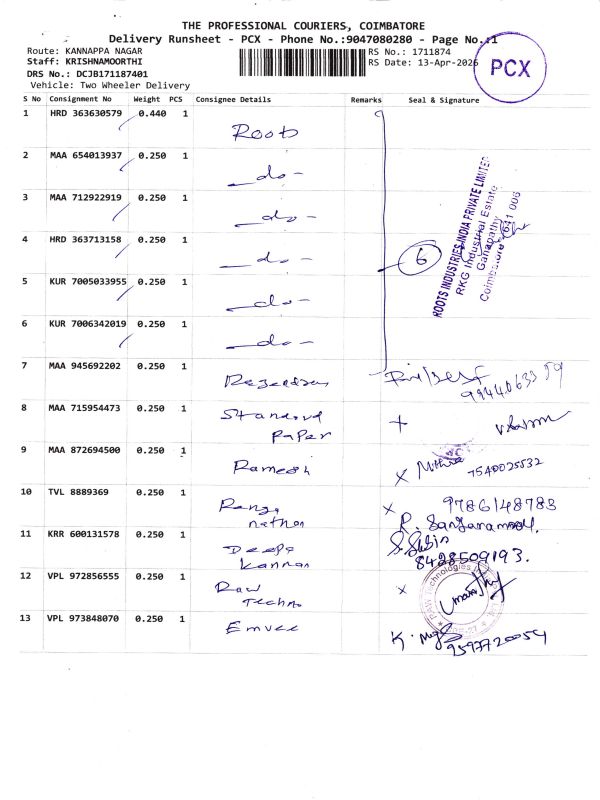 THE PROFESSIONAL COURIERS, COIMBATORE
Delivery Runsheet - PCX - Phone No.:9047080280 - Page No.:1
Route: KANNAPPA NAGAR
RS No.: 1711874
Staff: KRISHNAMOORTHI
RS Date: 13-Apr-2026
DRS No.: DCJB171187401
Vehicle: Two Wheeler Delivery
PCX
S No Consignment No Weight PCS Consignee Details Remarks Seal & Signature
1 HRD 363630579 0.440 1 Roots
2 MAA 654013937 0.250 1 -do-
3 MAA 712922919 0.250 1 -do-
4 HRD 363713158 0.250 1 -do-
5 KUR 7005033955 0.250 1 -do-
6 KUR 7006342019 0.250 1 -do-
6
ROOTS INDUSTRIES INDIA PRIVATE LIMITED
RKG Industrial Estate
Ganapathy
Coimbatore 641 006
7 MAA 945692202 0.250 1 Rajendran
8 MAA 715954473 0.250 1 Standard
Paper
9 MAA 872694500 0.250 1 Ramesh
7540025532
10 TVL 8889369 0.250 1 Ranga
nathan
9786148783
11 KRR 600131578 0.250 1 Deepa
Kannan
8428509193.
12 VPL 972856555 0.250 1 Raw
Techno
13 VPL 973848070 0.250 1 Emvee
9597720054